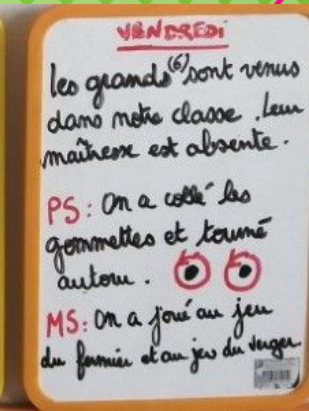 VENDREDI
les grands (6) sont venus
dans notre classe. Leur
maîtresse est absente.
PS: On a collé les
gommettes et tourné
autour.
MS: On a joué au jeu
du fermier et au jeu du verger